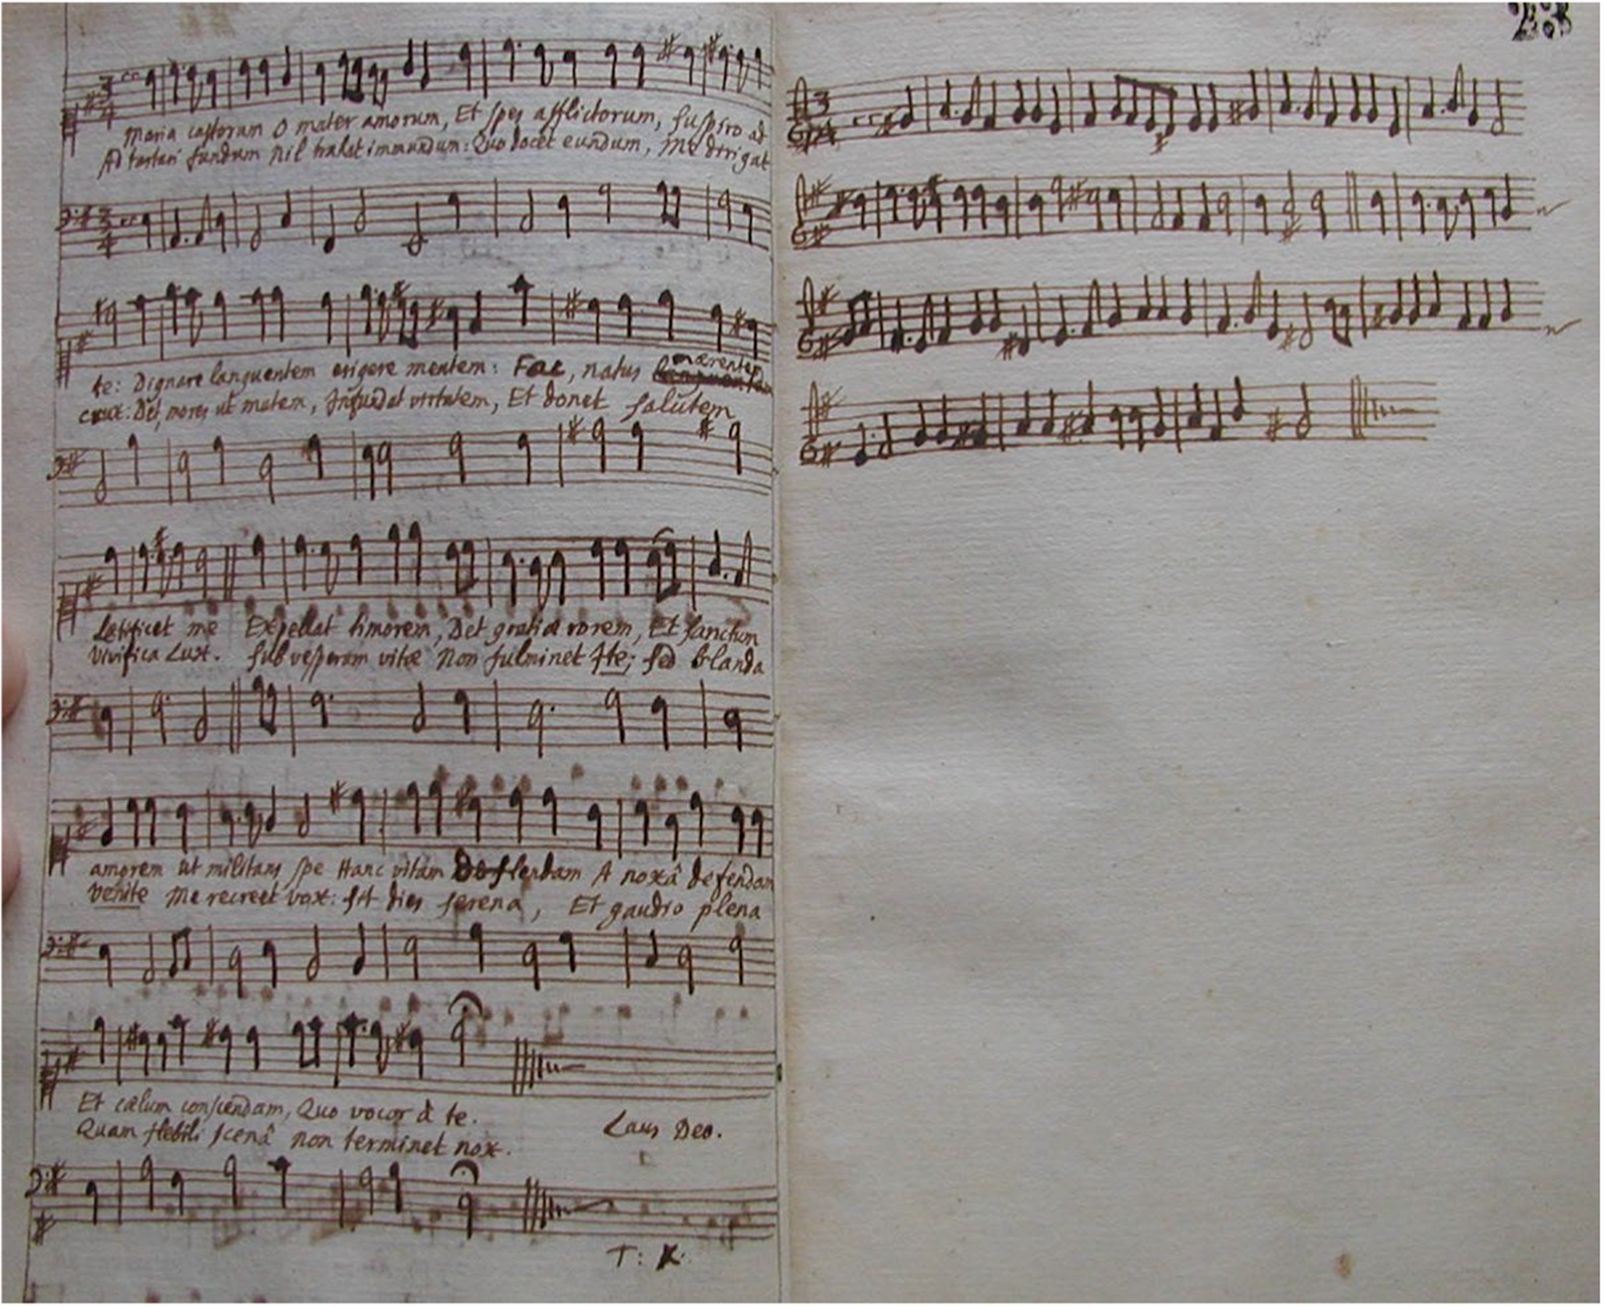 Maria castorum O mater amorum, Et spes afflictorum, suspiro ad
Ad tartari fundum Nil trahat immundum: Quo docet eundum, Me dirigat
te: Dignare languentem erigere mentem: Fac, natus mærentem
crux: Det mores ut mutem, Det virtutem, Et donet salutem
Lætificet me Expellat timorem, Det gratiæ rorem, Et sanctum
Vivifica Lux. Sub vesperam vitæ Non fulminet Ite; sed blanda
amorem Ut militans spe Hanc vitam Deflendam A noxâ defendam
venite Me recreet vox: sit dies serena, Et gaudio plena
Et cælum conscendam, Quo vocor à te.
Quam flebili scenâ non terminet nox.
Laus Deo.
T: K.